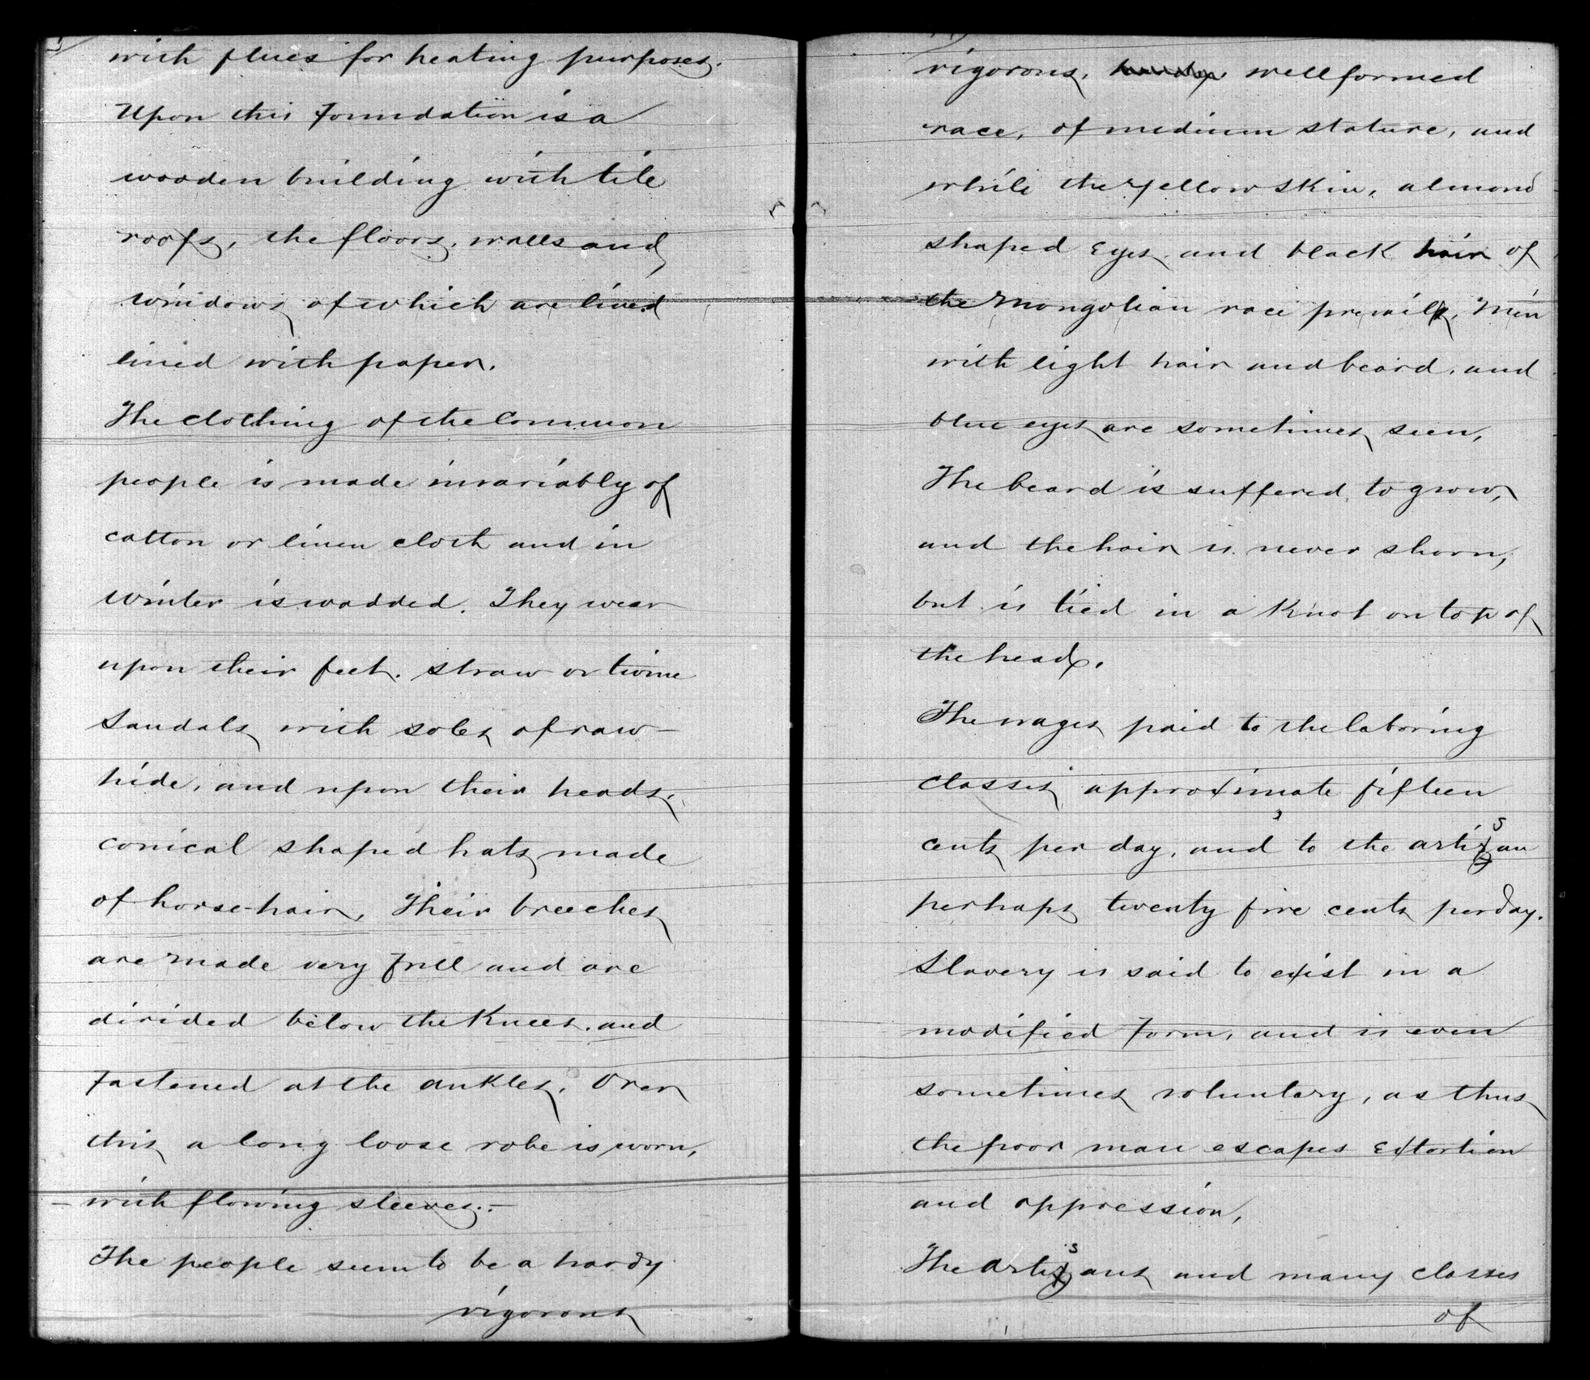 with flues for heating purposes.
Upon this foundation is a
wooden building with tile
roofs, the floors, walls and
windows of which are lined
lined with paper.
The clothing of the common
people is made invariably of
cotton or linen cloth and in
winter is wadded. They wear
upon their feet. straw or twine
Sandals with soles of raw-
hide, and upon their heads,
conical shaped hats made
of horse-hair, Their breeches
are made very full and are
divided below the Knees, and
fastened at the ankles, Over
this a long loose robe is worn,
with flowing sleeves.-
The people seem to be a hardy
vigorous
vigorous, wellformed
race, of medium stature, and
while the yellow skin, almond
shaped Eyes, and black hair of
the Mongolian race prevail, Men
with light hair and beard, and
blue eyes are sometimes seen,
The beard is suffered to grow,
and the hair is never shorn,
but is tied in a Knot on top of
the head.
The wages paid to the laboring
classes approximate fifteen
cents per day, and to the artisan
perhaps twenty five cents per day.
Slavery is said to exist in a
modified form, and is even
sometimes voluntary, as thus
the poor man escapes Extortion
and oppression,
The artisans and many classes
of